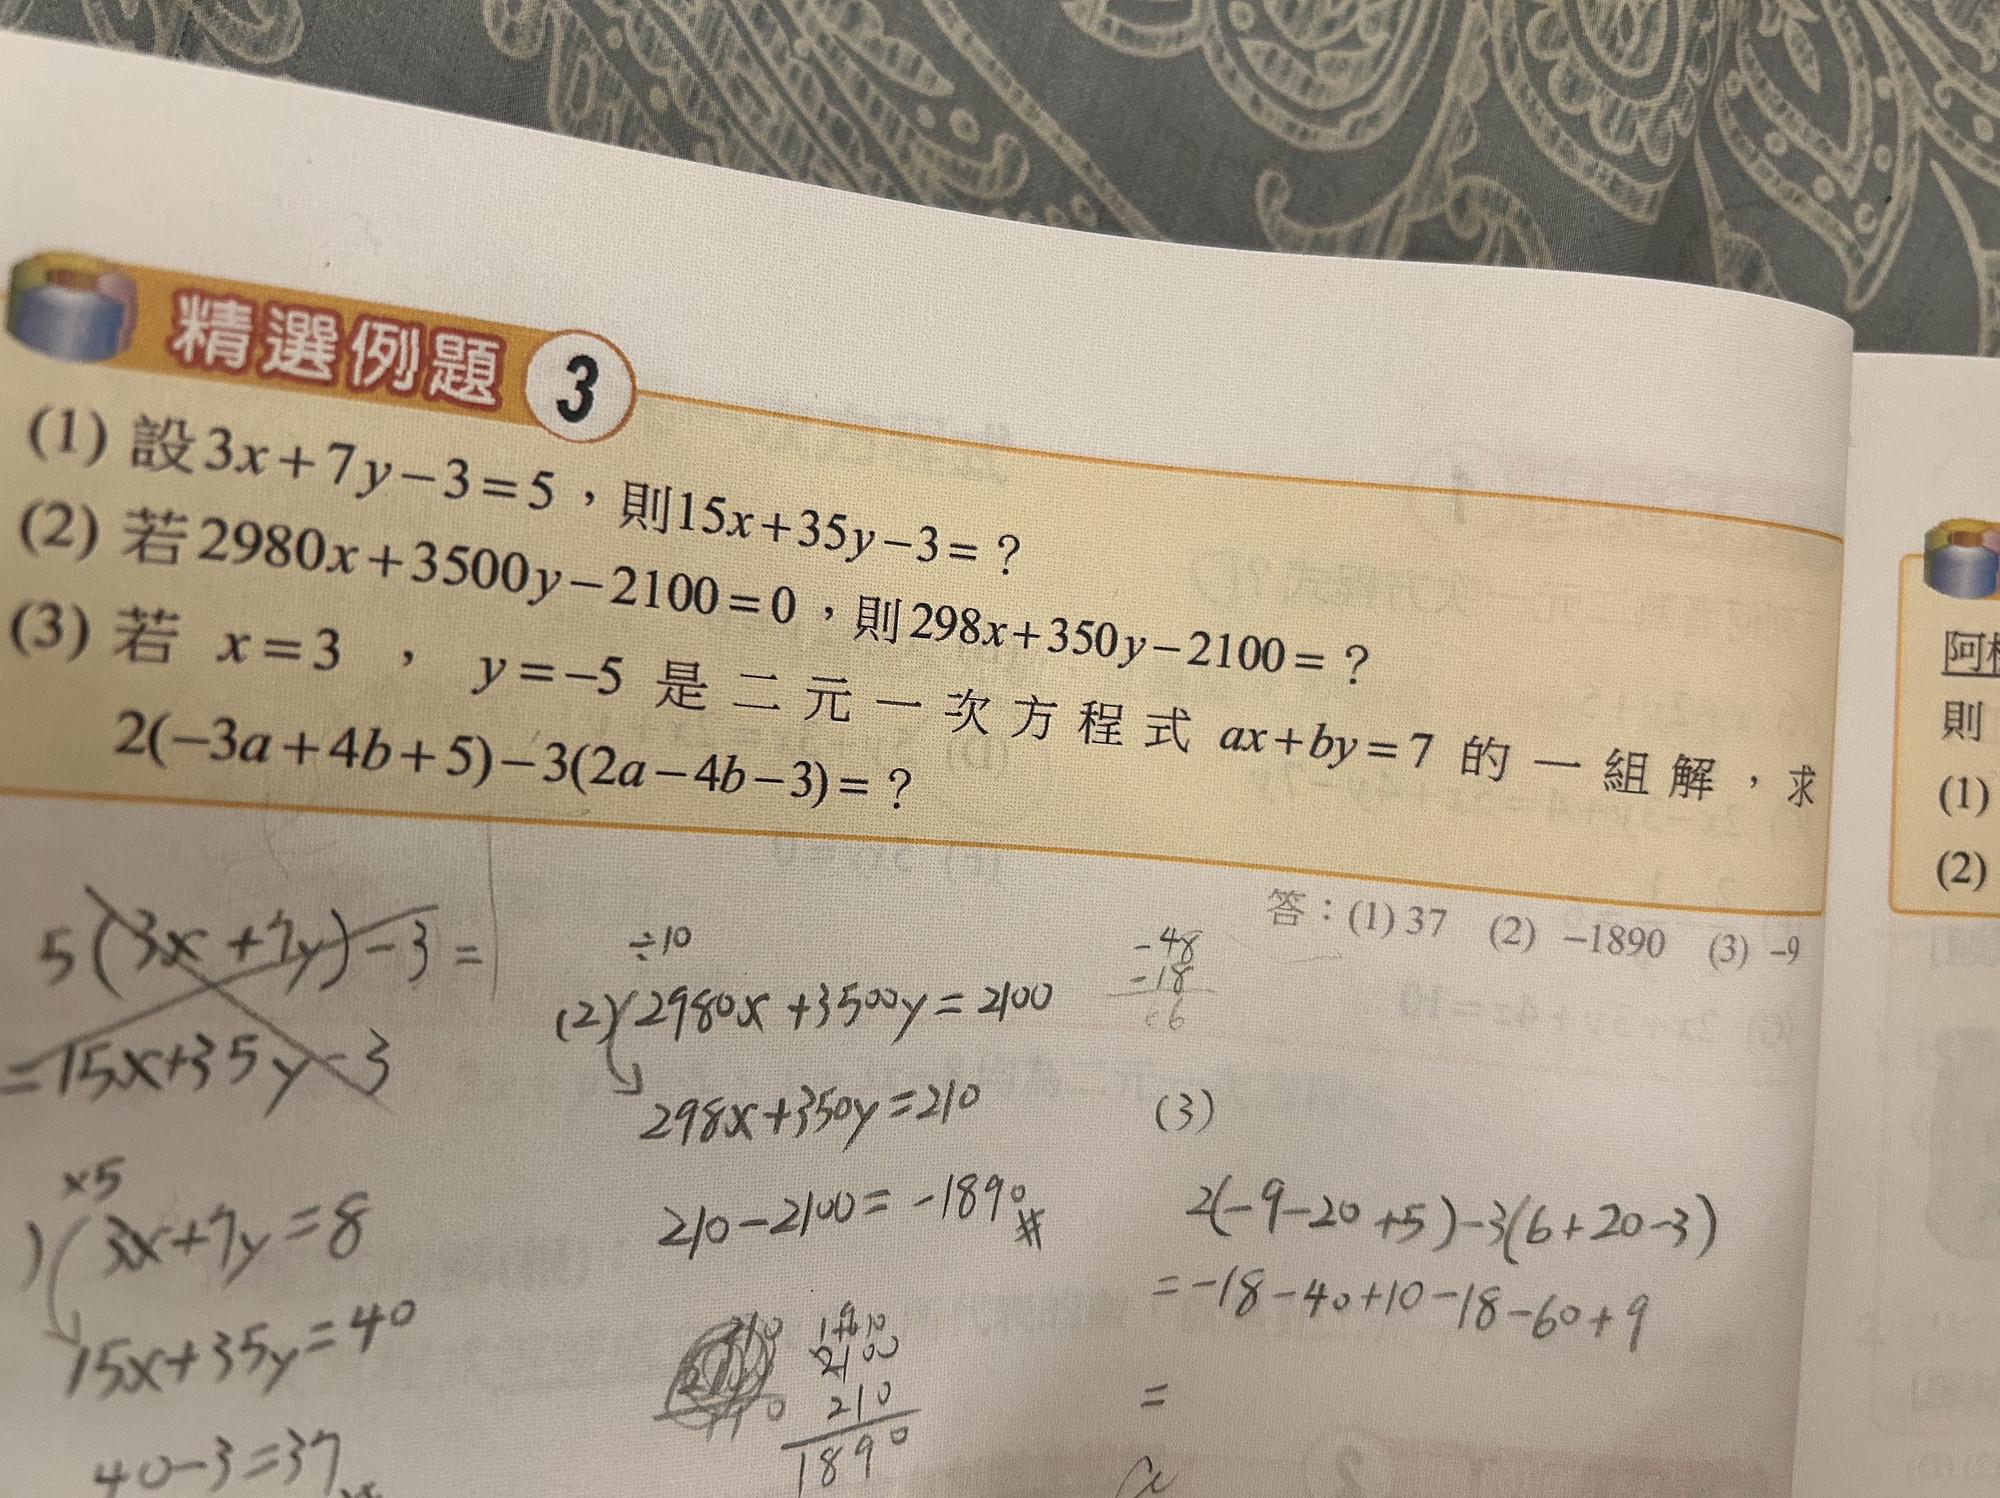 精選例題 3
(1) 設3x+7y−3=5，則15x+35y−3=？
(2) 若2980x+3500y−2100=0，則298x+350y−2100=？
(3) 若 x=3 ， y=−5 是二元一次方程式 ax+by=7 的一組解，求
2(−3a+4b+5)−3(2a−4b−3)=？
答：(1) 37 (2) −1890 (3) −9
5(3x+7y)−3=
=15x+35y−3
×5
3x+7y=8
15x+35y=40
40−3=37
÷10
(2) 2980x+3500y=2100
298x+350y=210
210−2100=−1890
2100
210
1890
−48
−18
(3)
2(−9−20+5)−3(6+20−3)
=−18−40+10−18−60+9
=
阿
則
(1)
(2)